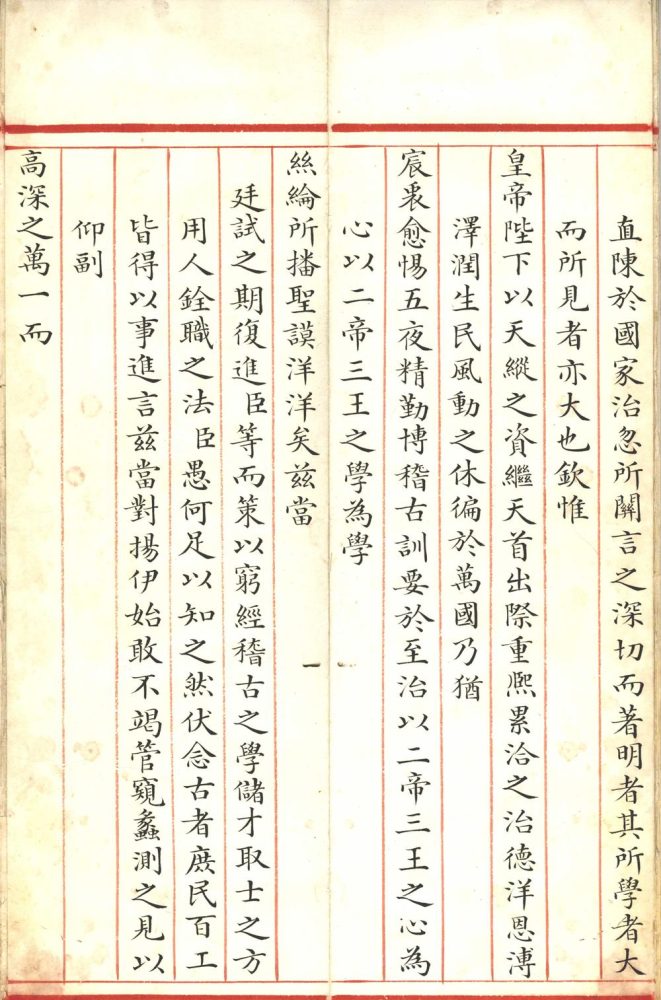 直陳於國家治忽所關言之深切而著明者其所學者大
而所見者亦大也欽惟
皇帝陛下以天縱之資繼天首出際重熈累洽之治德洋恩溥
澤潤生民風動之休徧於萬國乃猶
宸衷愈惕五夜精勤博稽古訓要於至治以二帝三王之心為
心以二帝三王之學為學
絲綸所播聖謨洋洋矣兹當
廷試之期復進臣等而策以窮經稽古之學儲才取士之方
用人銓職之法臣愚何足以知之然伏念古者庶民百工
皆得以事進言兹當對揚伊始敢不竭管窺蠡測之見以
仰副
高深之萬一而